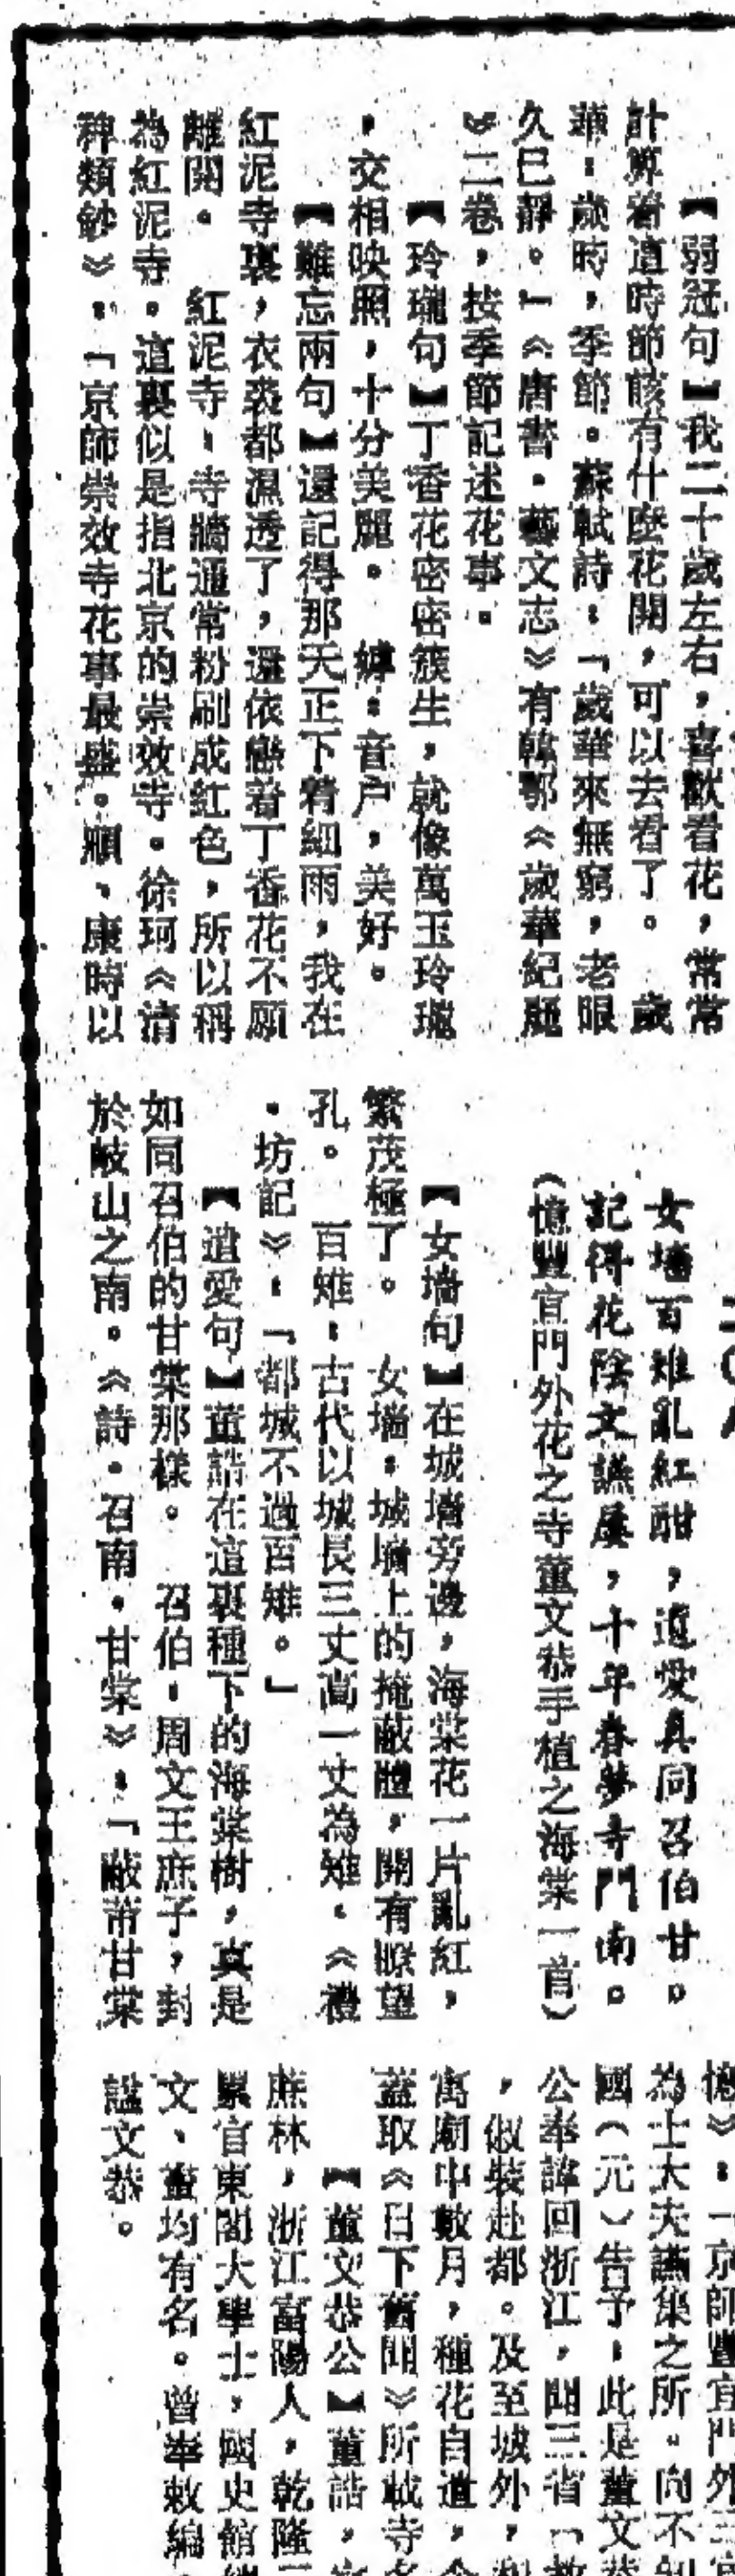 【弱冠句】我二十歲左右，喜歡看花，常常
計算着這時節該有什麼花開，可以去看了。　歲
華：歲時，季節。蘇軾詩：「歲華來無窮，老眼
久已靜。」《唐書·藝文志》有韓鄂《歲華紀麗
》二卷，按季節記述花事。
【玲瓏句】丁香花密密簇生，就像萬玉玲瓏
，交相映照，十分美麗。　嫭：音户，美好。
【難忘兩句】還記得那天正下着細雨，我在
紅泥寺裏，衣裘都濕透了，還依戀着丁香花不願
離開。　紅泥寺：寺牆通常粉刷成紅色，所以稱
為紅泥寺。這裏似是指北京的崇效寺。徐珂《清
稗類鈔》：「京師崇效寺花事最盛。順、康時以
女墻百雉亂紅酣，遺愛真同召伯甘。
記得花陰文讌屢，十年春夢寺門南。
（憶豐宜門外花之寺董文恭手植之海棠一首）
【女墻句】在城墻旁邊，海棠花一片亂紅，
繁茂極了。　女墻：城墻上的掩蔽體，開有瞭望
孔。　百雉：古代以城長三丈高一丈為雉。《禮
·坊記》：「都城不過百雉。」
【遺愛句】董誥在這裏種下的海棠樹，真是
如同召伯的甘棠那樣。　召伯：周文王庶子，封
於岐山之南。《詩·召南·甘棠》：「蔽芾甘棠
憶》：「京師豐宜門外三官
為士大夫讌集之所。向不知
國（元）告予：此是董文恭
公奉諱回浙江，聞三省「教
，俶裝赴都。及至城外，和
寓廟中數月，種花自遣，今
蓋取《日下舊聞》所載寺名
【董文恭公】董誥，字
蔗林，浙江富陽人，乾隆二
累官東閣大學士，國史館總
文、董均有名。曾奉敕編
謚文恭。